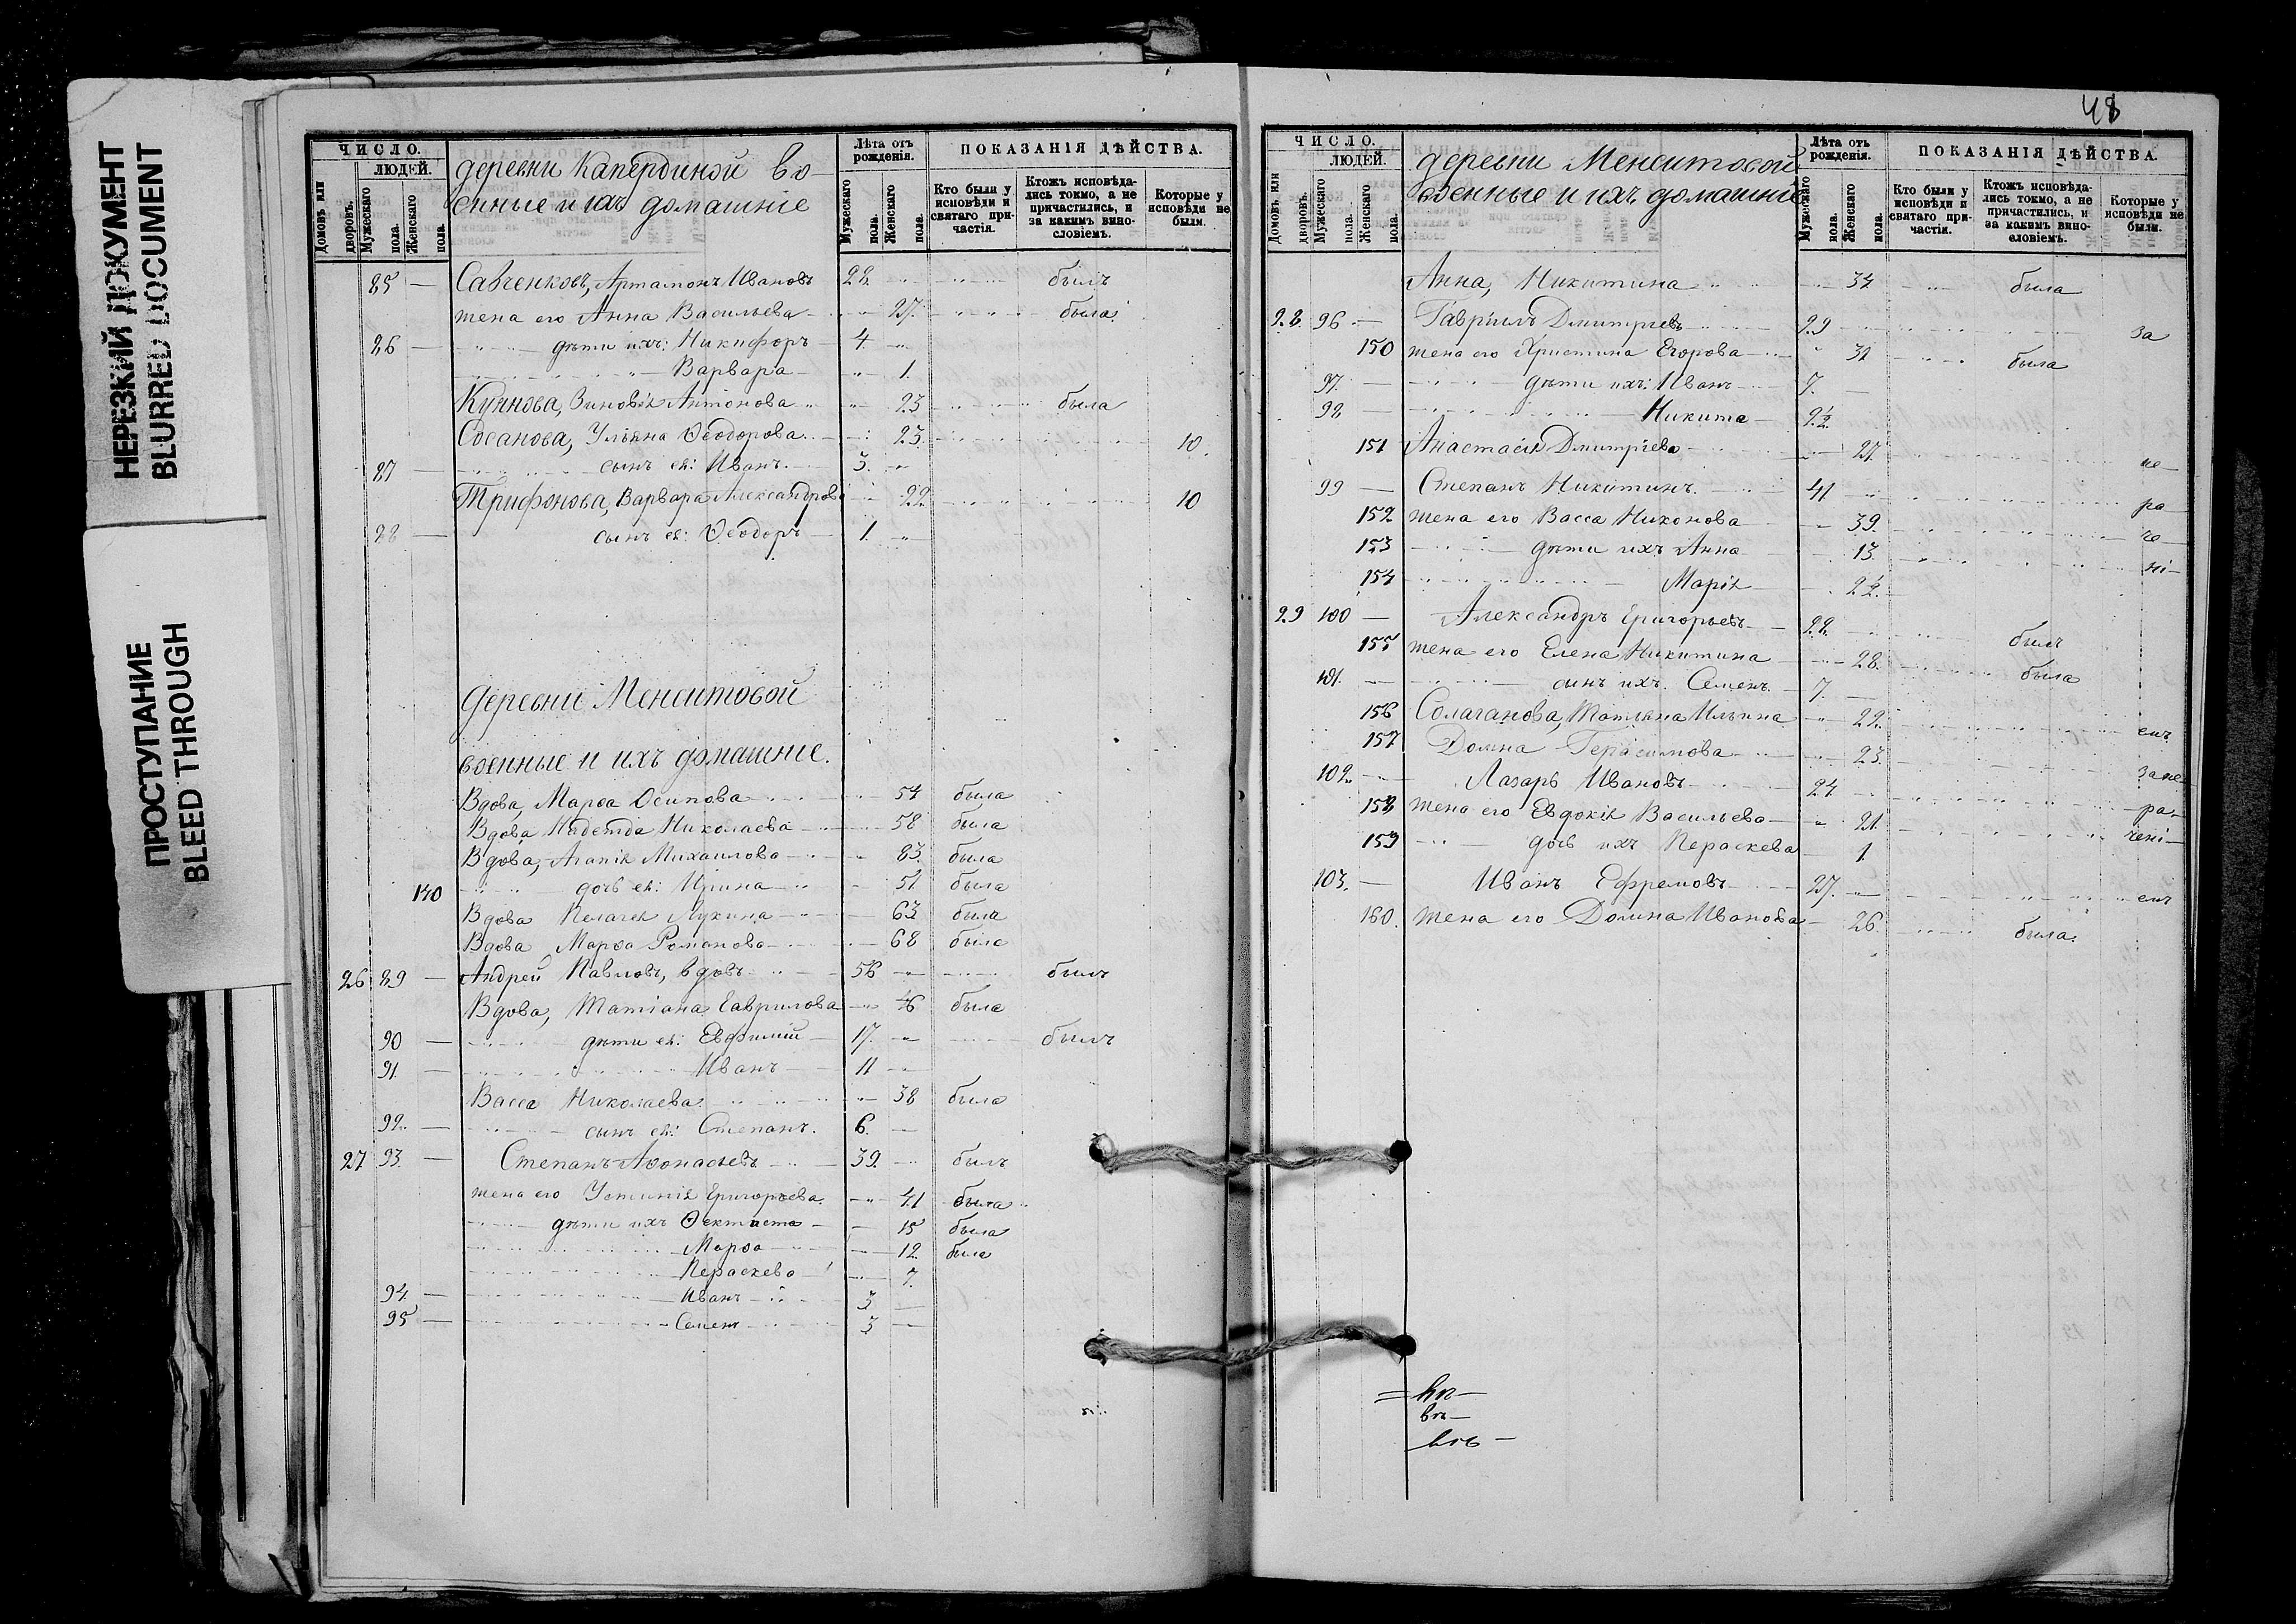 НЕРЕЗКИЙ ДОКУМЕНТ
BLURRED DOCUMENT
ПРОСТУПАНИЕ
BLEED THROUGH
ЧИСЛО.
ЛЮДЕЙ.
Домовъ или дворовъ.
Мужескаго пола.
Женскаго пола.
деревни Капердиной во-
енные и ихъ домашніе
Лѣта отъ рожденія.
Мужескаго пола.
Женскаго пола.
ПОКАЗАНІЯ ДѢЙСТВА.
Кто были у исповѣди и святаго при-частія.
Ктожъ исповѣда-лись токмо, а не причастились, и за какимъ вино-словіемъ.
Которые у исповѣди не были.
85 — Савченковъ, Артамонъ Ивановъ 28 былъ
жена его Анна Васильева 27 была
86 — дѣти ихъ: Никифоръ 4
Варвара 1
Зиновія Антонова 23 была
Ульяна Ѳеодорова 23 10
87 — сынъ ея: Иванъ 3
Трифонова, Варвара Александрова 22 10
88 — сынъ ея: Ѳеодоръ 1
Деревни Менситовой
военные и ихъ домашніе.
Вдова, Марѳа Осипова 57 была
Вдова Надежда Николаева 58 была
Вдова, Агапія Михаилова 83 была
140 дочь ея: Ирина 51 была
Вдова Пелагея Лукина 63 была
Вдова Марѳа Романова 68 была
26 89 — Андрей Павловъ, вдовъ 56 былъ
Вдова, Татіана Гаврилова 46 была
90 — дѣти ея: Евфимій 17 былъ
91 — Иванъ 11
Васса Николаева 38 была
92 — сынъ ея: Степанъ 6
27 93 — Степанъ Аѳонасьевъ 39 былъ
жена его Устинія Григорьева 41 была
дѣти ихъ Ѳектиста 15 была
Марѳа 12 была
Параскева 7
94 — Иванъ 3
95 — Семенъ 3
48
ЧИСЛО.
ЛЮДЕЙ.
Домовъ или дворовъ.
Мужескаго пола.
Женскаго пола.
деревни Менситовой
военные и ихъ домашніе
Лѣта отъ рожденія.
Мужескаго пола.
Женскаго пола.
ПОКАЗАНІЯ ДѢЙСТВА.
Кто были у исповѣди и святаго при-частія.
Ктожъ исповѣда-лись токмо, а не причастились, и за какимъ вино-словіемъ.
Которые у исповѣди не были.
Анна, Никитина 34 была
28 96 — Гавріилъ Дмитріевъ 29 за
150 жена его Христина Егорова 31 была
97 — дѣти ихъ: Иванъ 7
98 — Никита 2½
151 Анастасія Дмитріева 21 не-
99 — Степанъ Никитинъ 41 ра-
152 жена его Васса Никонова 39 че-
153 дѣти ихъ Анна 13 ні-
154 Марія 2½
29 100 — Александръ Григорьевъ 28 былъ
155 жена его Елена Никитина 28 была
101 — сынъ ихъ Семенъ 7
156 Солаганова, Татьяна Ильина 22 емъ
157 Домна Герасимова 23 за не-
102 — Лазарь Ивановъ 24 ра-
158 жена его Евдокія Васильева 21 чені-
159 дочь ихъ Параскева 1
103 — Иванъ Ефремовъ 27 емъ
160 жена его Домна Иванова 26 была